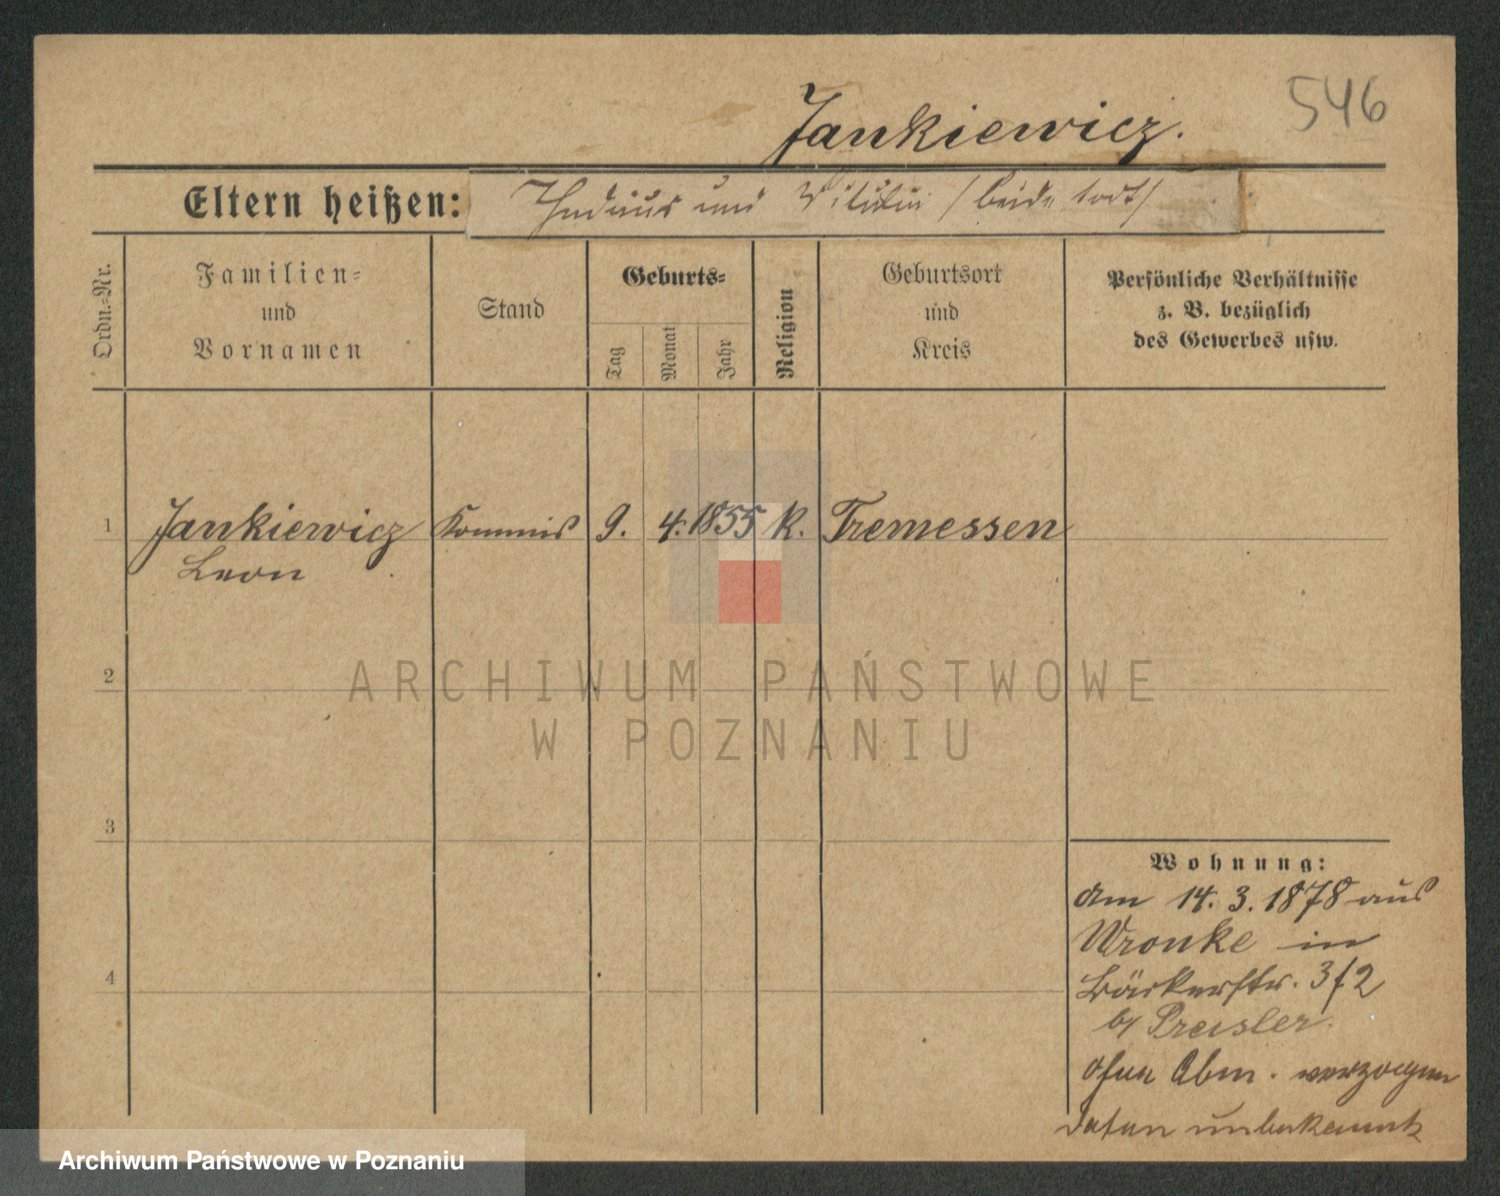 546
Jankiewicz.
Eltern heißen:
und / beide todt /
Ordn.-Nr.
Familien-
und
Vornamen
Stand
Geburts-
Tag
Monat
Jahr
Religion
Geburtsort
und
Kreis
Persönliche Verhältnisse
z. B. bezüglich
des Gewerbes usw.
1 Jankiewicz Kommis 9. 4. 1855 k. Tremessen
Leon
2
3
4
Wohnung:
Am 14. 3. 1878 aus
Wronke in
Bäckerstr. 3/2
b/ Preisler.
ohne Abm. verzogen
Daten unbekannt
ARCHIWUM PAŃSTWOWE
W POZNANIU
Archiwum Państwowe w Poznaniu